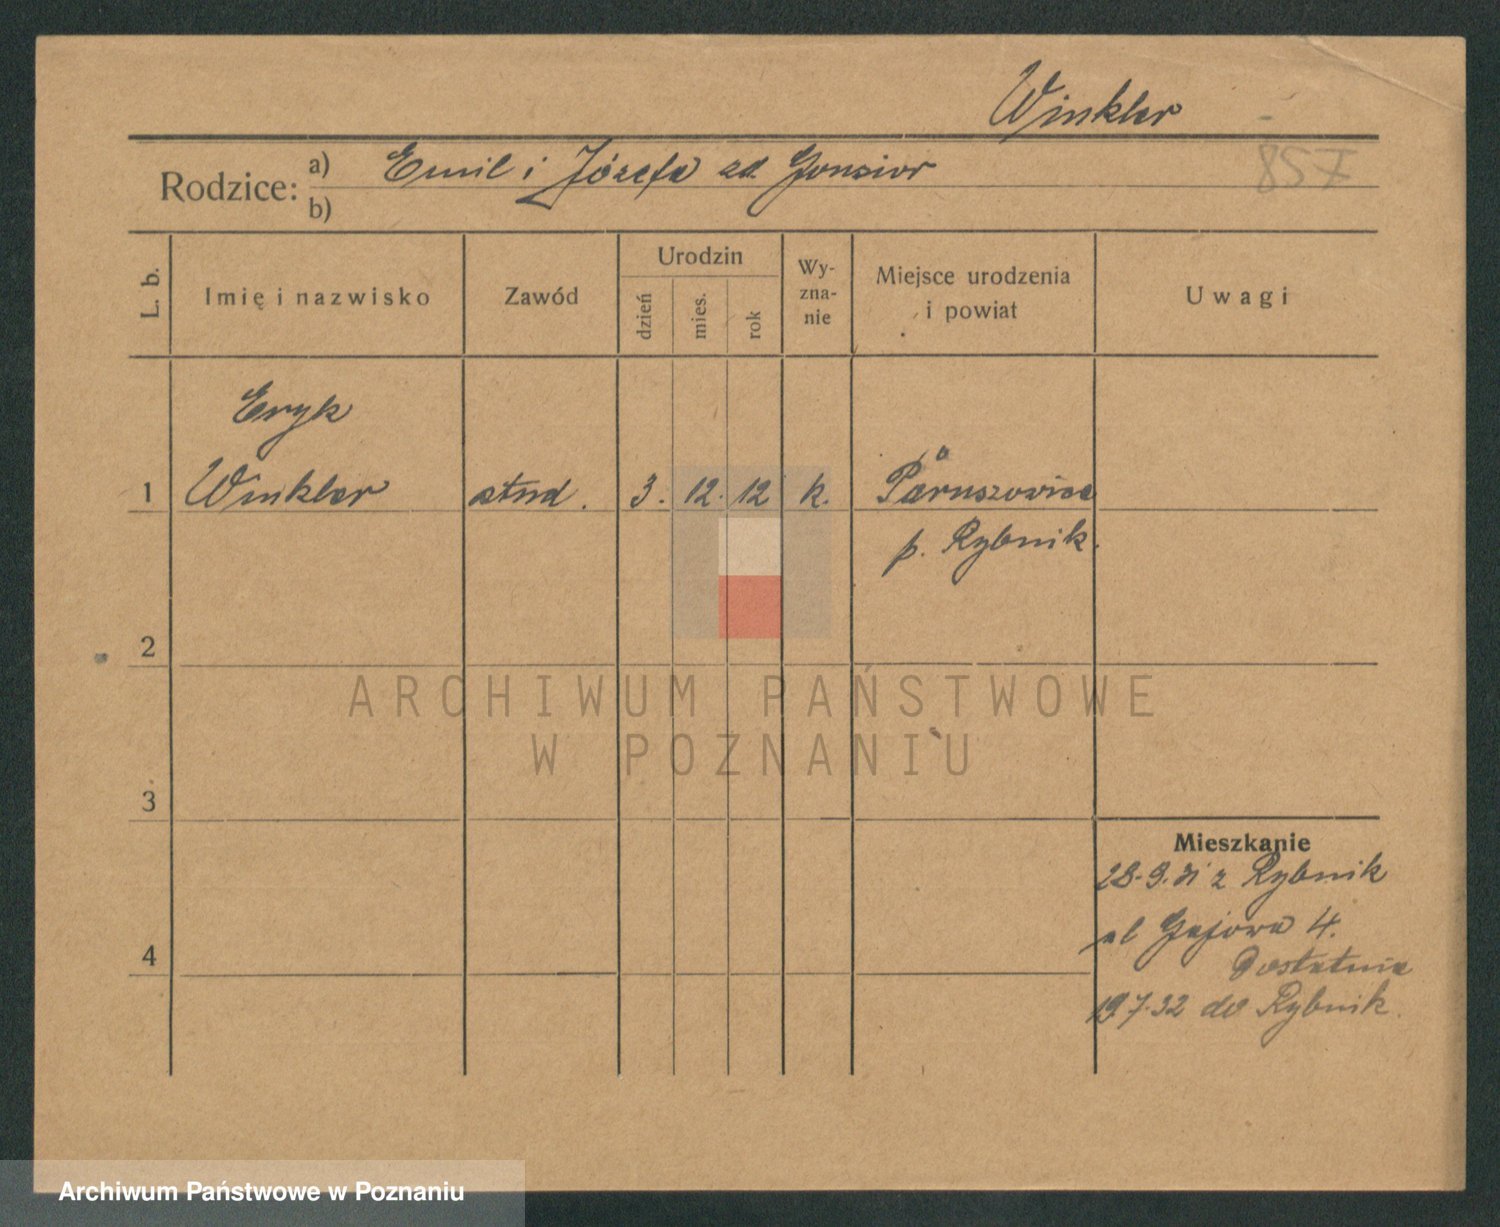 Winkler
857
Rodzice: a) Emil i Józefa zd. Gonsior
b)
L. b.
Imię i nazwisko
Zawód
Urodzin
dzień
mies.
rok
Wy-
zna-
nie
Miejsce urodzenia
i powiat
Uwagi
Eryk
1 Winkler stud. 3. 12. 12 k. Paruszowice
p. Rybnik.
2
ARCHIWUM PAŃSTWOWE
W POZNANIU
3
Mieszkanie
28.9.31 z Rybnik
ul Gajowa 4.
4
Dostatnia
19.7.32 do Rybnik.
Archiwum Państwowe w Poznaniu